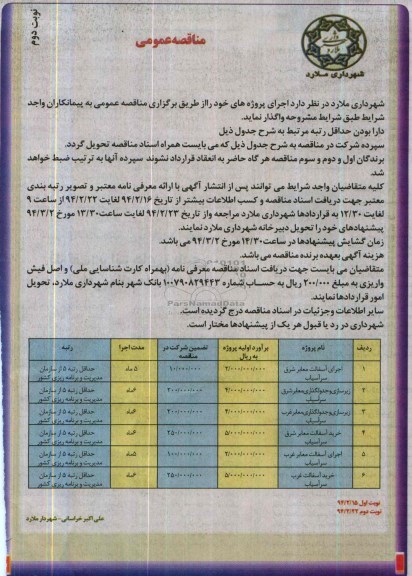 نوبت دوم
مناقصه عمومی
شهرداری ملارد
شهرداری ملارد در نظر دارد اجرای پروژه های خود رااز طریق برگزاری مناقصه عمومی به پیمانکاران واجد
شرایط طبق شرایط مشروحه واگذار نماید.
دارا بودن حداقل رتبه مرتبط به شرح جدول ذیل
سپرده شرکت در مناقصه به شرح جدول ذیل که می بایست همراه اسناد مناقصه تحویل گردد.
برندگان اول و دوم و سوم مناقصه هر گاه حاضر به انعقاد قرارداد نشوند سپرده آنها به ترتیب ضبط خواهد
شد.
کلیه متقاضیان واجد شرایط می توانند پس از انتشار آگهی با ارائه معرفی نامه معتبر و تصویر رتبه بندی
معتبر جهت دریافت اسناد مناقصه و کسب اطلاعات بیشتر از تاریخ ۹۴/۲/۱۶ لغایت ۹۴/۲/۲۲ از ساعت ۹
لغایت ۱۲/۳۰ به قراردادها شهرداری ملارد مراجعه واز تاریخ ۹۴/۲/۲۳ لغایت ساعت۱۳/۳۰ مورخ ۹۴/۳/۲
پیشنهادهای خود را تحویل دبیرخانه شهرداری ملارد نمایند.
زمان گشایش پیشنهادها در ساعت۱۴/۳۰ مورخ ۹۴/۳/۲ می باشد.
هزینه آگهی بعهده برنده مناقصه می باشد.
متقاضیان می بایست جهت دریافت اسناد مناقصه معرفی نامه (بهمراه کارت شناسایی ملی) و اصل فیش
واریزی به مبلغ ۲۰۰/۰۰۰ ریال به حساب شماره ۱۰۰۷۹۰۸۲۹۴۴۳ بانک شهر بنام شهرداری ملارد، تحویل
امور قراردادها نمایند.
سایر اطلاعات وجزئیات در اسناد مناقصه درج گردیده است.
شهرداری در رد یا قبول هر یک از پیشنهادها مختار است.
ParsNamadData
ردیف نام پروژه برآورد اولیه پروژه به ریال تضمین شرکت در مناقصه مدت اجرا رتبه
۱ اجرای آسفالت معابر شرق سرآسیاب ۲/۰۰۰/۰۰۰/۰۰۰ ۱۰۰/۰۰۰/۰۰۰ ۵ ماه حداقل رتبه ۵ از سازمان مدیریت و برنامه ریزی کشور
۲ زیرسازی و جدولگذاری معابر شرق سرآسیاب ۴/۰۰۰/۰۰۰/۰۰۰ ۲۰۰/۰۰۰/۰۰۰ ۶ماه حداقل رتبه ۵ از سازمان مدیریت و برنامه ریزی کشور
۳ زیرسازی و جدولگذاری معابر غرب سرآسیاب ۴/۰۰۰/۰۰۰/۰۰۰ ۲۰۰/۰۰۰/۰۰۰ ۶ماه حداقل رتبه ۵ از سازمان مدیریت و برنامه ریزی کشور
۴ خرید آسفالت شرق سرآسیاب ۵/۰۰۰/۰۰۰/۰۰۰ ۲۵۰/۰۰۰/۰۰۰ ۶ماه حداقل رتبه ۵ از سازمان مدیریت و برنامه ریزی کشور
۵ اجرای آسفالت معابر غرب سرآسیاب ۲/۰۰۰/۰۰۰/۰۰۰ ۱۰۰/۰۰۰/۰۰۰ ۵ماه حداقل رتبه ۵ از سازمان مدیریت و برنامه ریزی کشور
۶ خرید آسفالت غرب سرآسیاب ۵/۰۰۰/۰۰۰/۰۰۰ ۲۵۰/۰۰۰/۰۰۰ ۶ماه حداقل رتبه ۵ از سازمان مدیریت و برنامه ریزی کشور
نوبت اول ۹۴/۲/۱۵
نوبت دوم ۹۴/۲/۲۲
علی اکبر خراسانی - شهردار ملارد